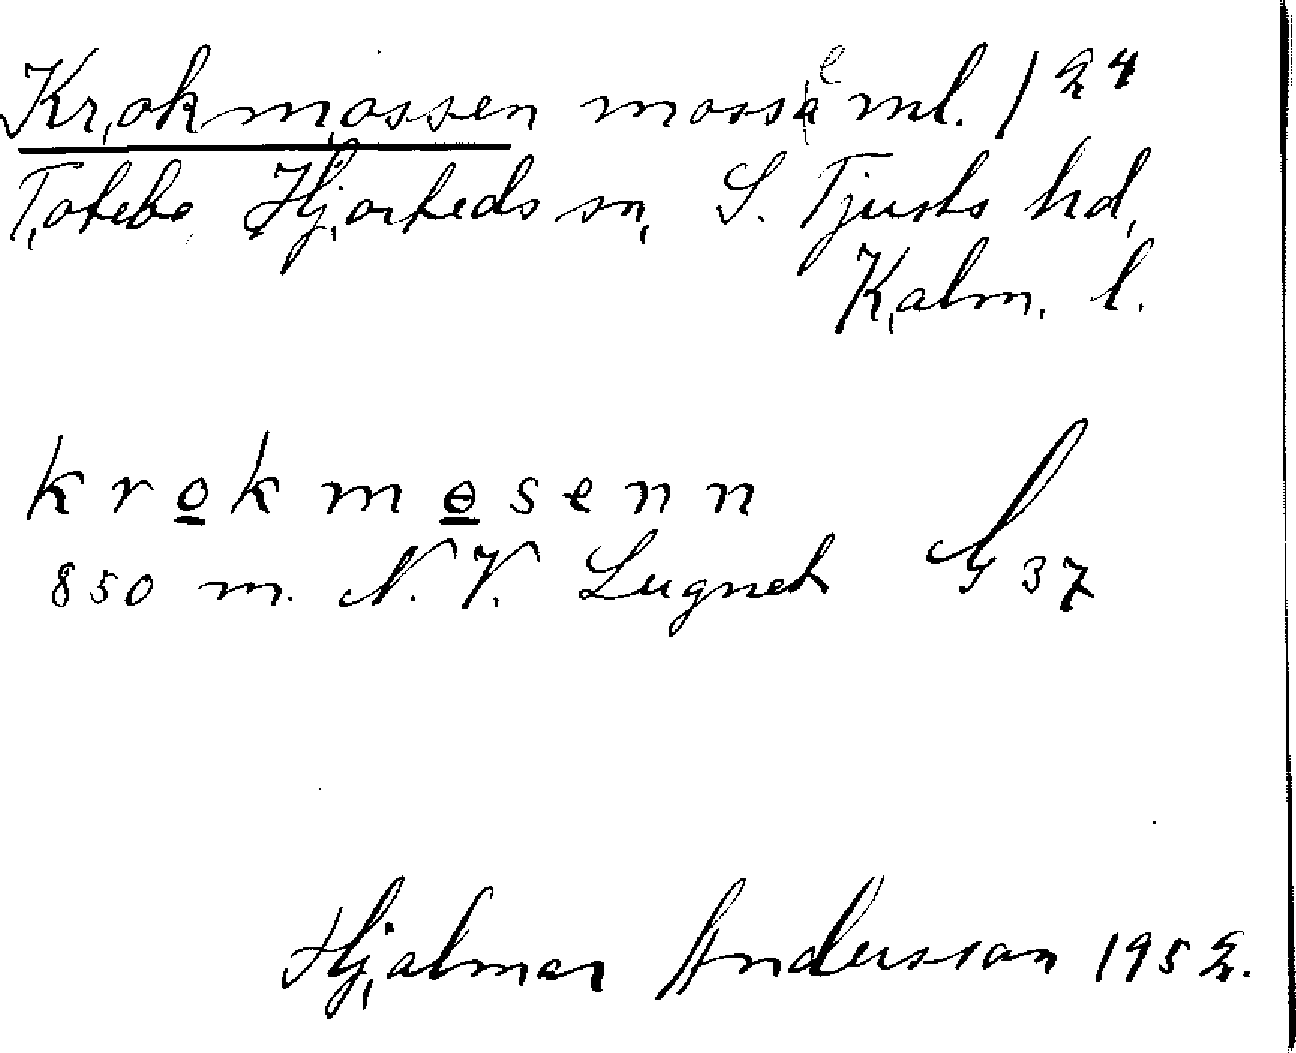 Krokmossen mosse ml. 124
Totebo, Hjorteds sn, S. Tjusts hd,
Kalm. l.
krokmɵsenn
850 m. N. V. Lugnet G 37
Hjalmar Andersson 1952.